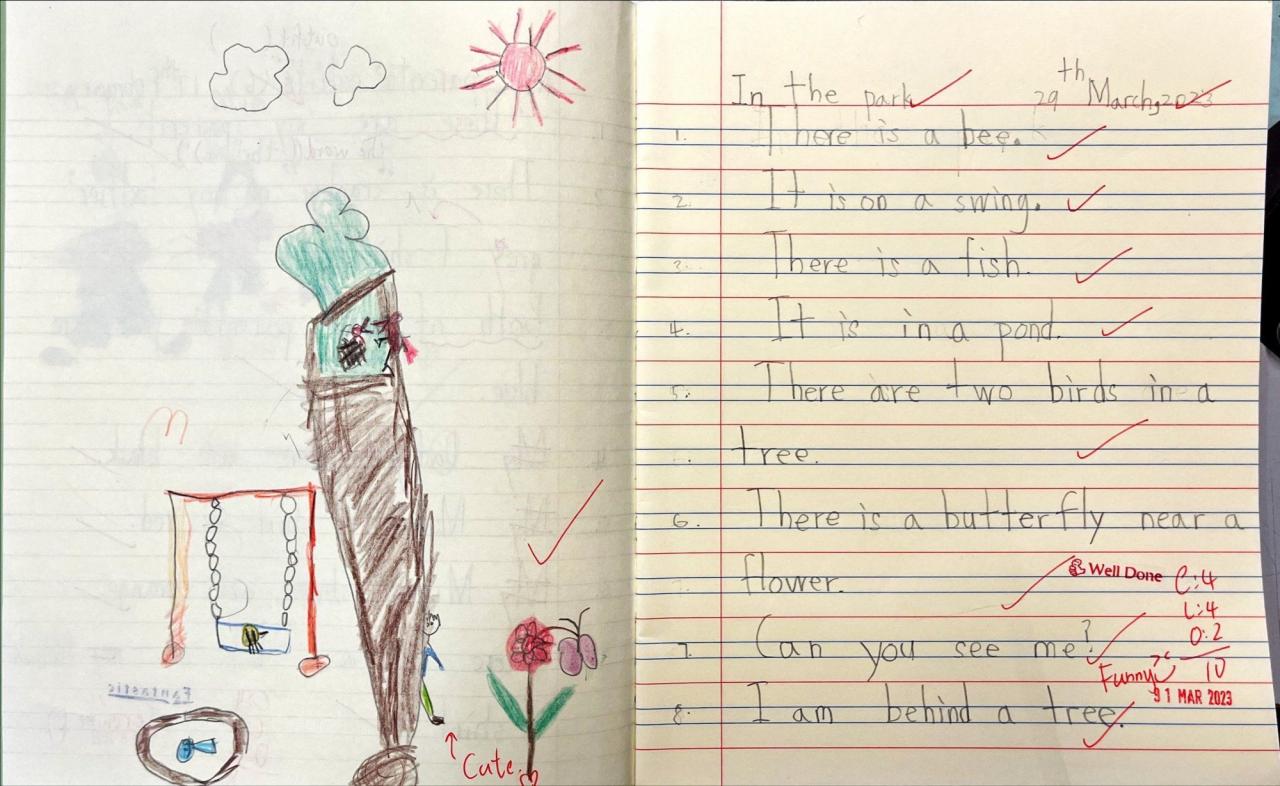 In the park
29th March, 2023
1. There is a bee.
2. It is on a swing.
3. There is a fish.
4. It is in a pond.
5. There are two birds in a
tree.
6. There is a butterfly near a
flower.
Well Done
C:4
L:4
O:2
10
7. Can you see me?
Funny
31 MAR 2023
8. I am behind a tree.
Cute